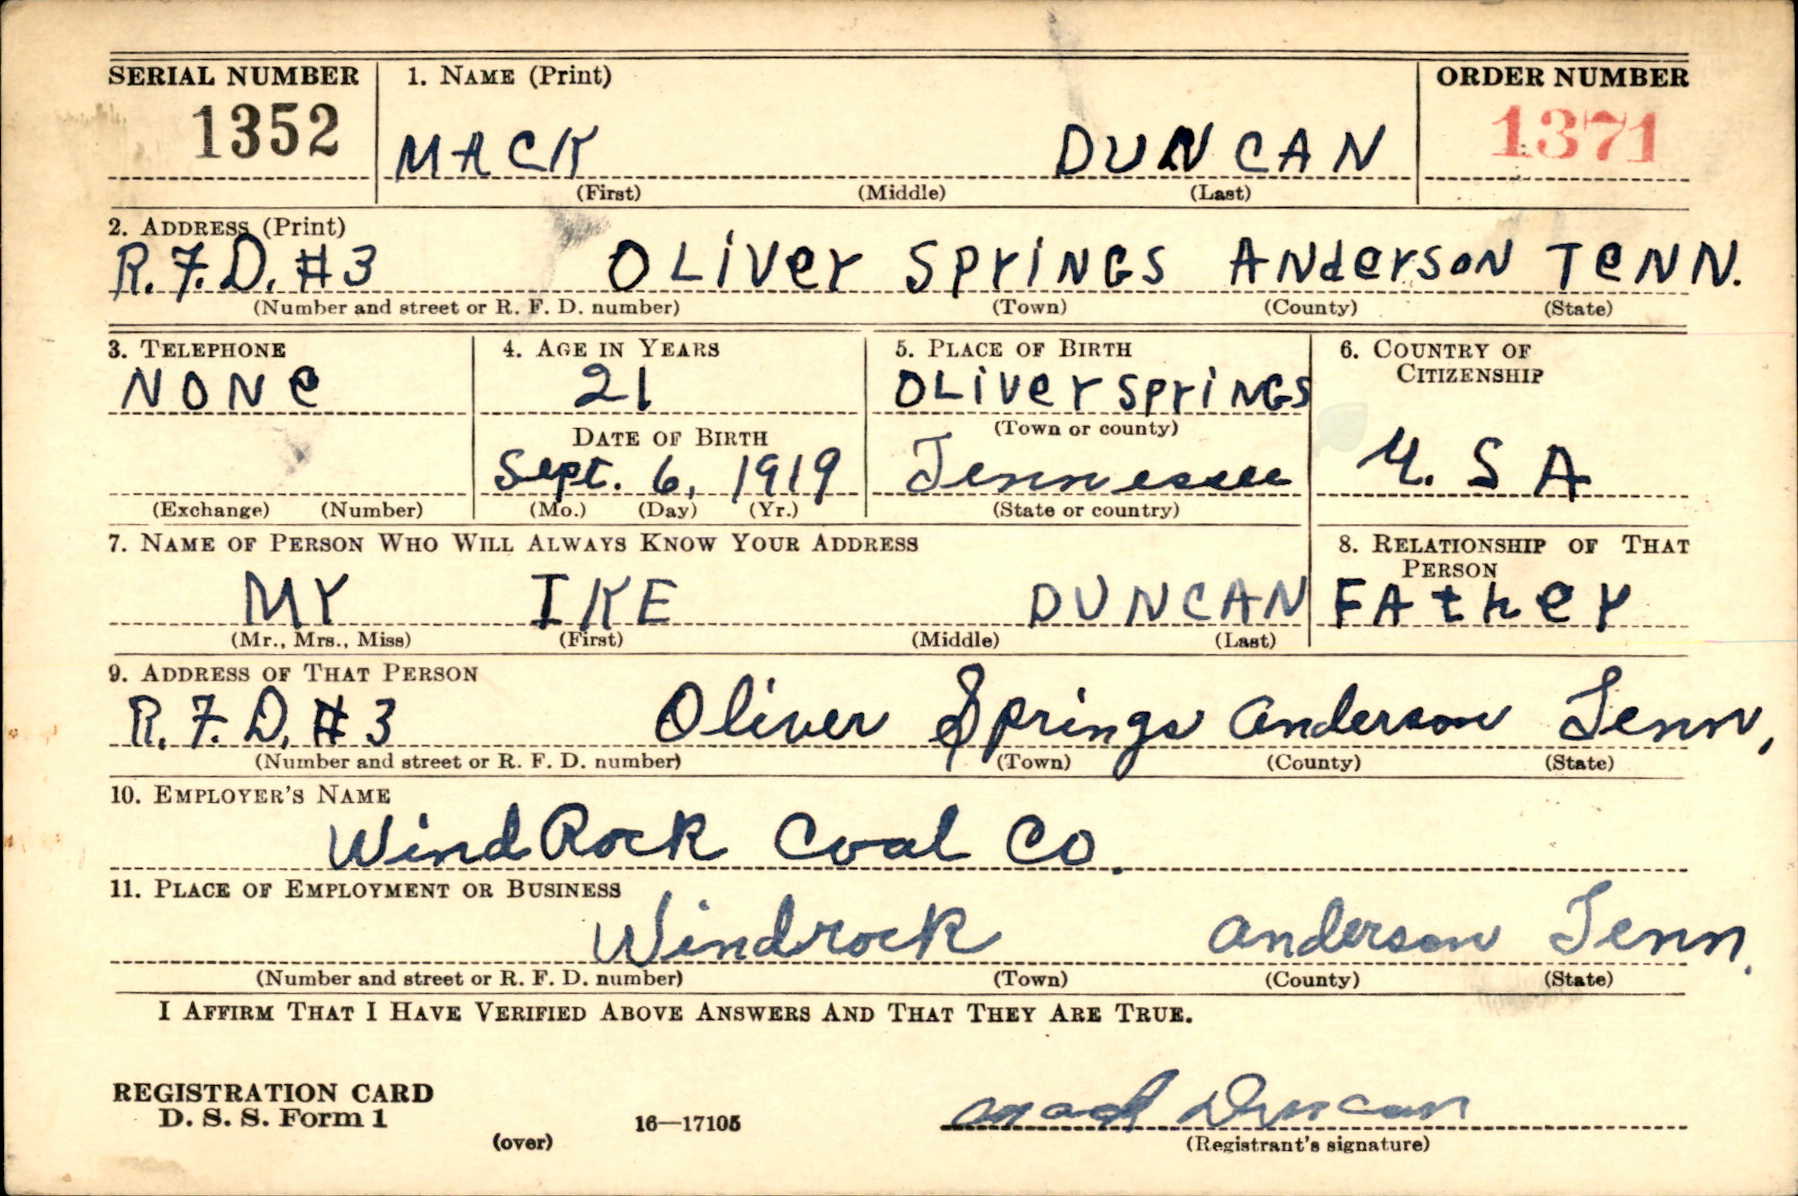 SERIAL NUMBER 1. NAME (Print) ORDER NUMBER
1352 MACK DUNCAN 1371
(First) (Middle) (Last)
2. ADDRESS (Print)
R.F.D. #3 OLiVer SPriNGS ANdersoN TeNN.
(Number and street or R. F. D. number) (Town) (County) (State)
3. TELEPHONE 4. AGE IN YEARS 5. PLACE OF BIRTH 6. COUNTRY OF CITIZENSHIP
NONe 21 OLiver SPriNGS
(Town or county)
DATE OF BIRTH
Sept. 6, 1919 Tennessee U. S A
(Exchange) (Number) (Mo.) (Day) (Yr.) (State or country)
7. NAME OF PERSON WHO WILL ALWAYS KNOW YOUR ADDRESS 8. RELATIONSHIP OF THAT PERSON
Mr IKE DUNCAN FAther
(Mr., Mrs., Miss) (First) (Middle) (Last)
9. ADDRESS OF THAT PERSON
R.F.D. #3 Oliver Springs Anderson Tenn,
(Number and street or R. F. D. number) (Town) (County) (State)
10. EMPLOYER'S NAME
Wind Rock Coal Co.
11. PLACE OF EMPLOYMENT OR BUSINESS
Windrock Anderson Tenn.
(Number and street or R. F. D. number) (Town) (County) (State)
I AFFIRM THAT I HAVE VERIFIED ABOVE ANSWERS AND THAT THEY ARE TRUE.
REGISTRATION CARD
D. S. S. Form 1 16—17105 Mack Duncan
(over) (Registrant's signature)